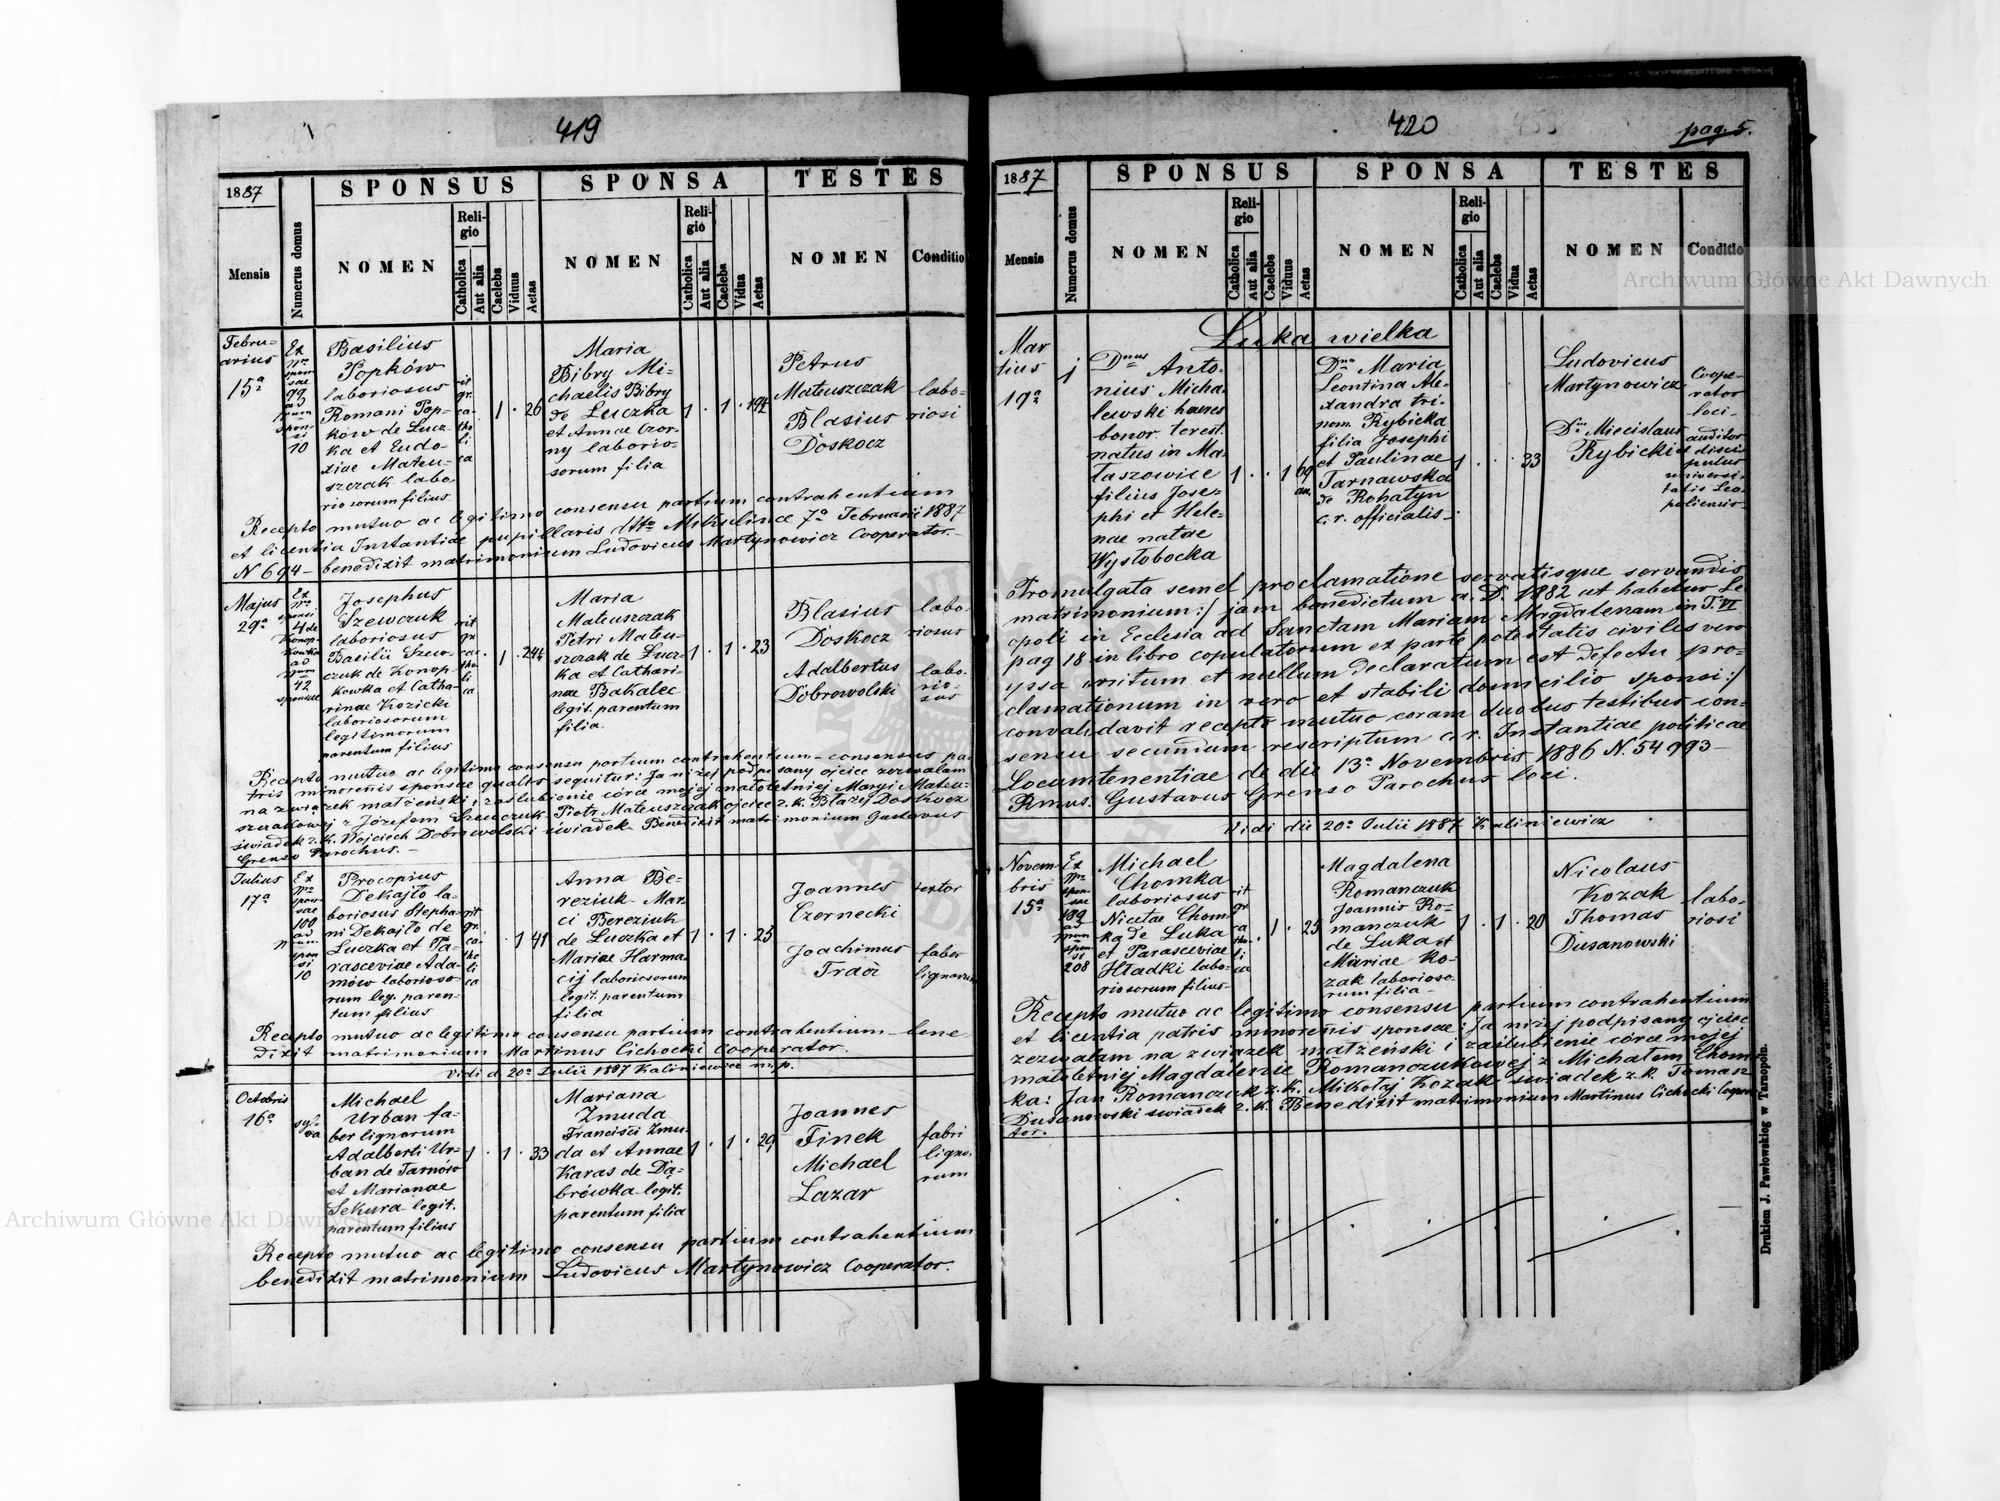 419
1887
SPONSUS
SPONSA
TESTES
Mensis
Numerus domus
NOMEN
Religio
Catholica
Aut alia
Caelebs
Viduus
Aetas
NOMEN
Religio
Catholica
Aut alia
Caelebs
Vidua
Aetas
NOMEN
Conditio
Februarius
15ª
Ex
Nro
sponsae
99
ad
Num
sponsi
10
Basilius
Popków
laboriosus
Romani Pop-
ków de Łucz-
ka et Eudo-
xiae Mateu-
szczak labo-
riosorum filius
rit
gr.
ca-
tho
li
ca
1
26
Maria
Bibry Mi-
chaelis Bibry
de Łuczka
et Annae Czor-
ny laborio-
sorum filia
1 . 1 . 19½
Petrus
Mateuszczak
Blasius
Doskocz
labo-
riosi
Recepto mutuo ac legitimo consensu partium contrahentium
et licentia Instantiae pupillaris dtto Mikulince 7ª Februarii 1887
N 694 – benedixit matrimonium Ludovicus Martynowicz Cooperator. –
Majus
29ª
Ex
Nro
sponsi
4 de
Konop-
kowka
ad
Num
42
sponsae
Josephus
Szewczuk
laboriosus
Basilii Szew-
czuk de Konop-
kowka et Catha-
rinae Kozicki
laboriosorum
legitimorum
parentum filius
rit
gr
ca-
tho
li
ca
1 . 24½
Maria
Mateuszczak
Petri Mateu-
szczak de Łucz-
ka et Cathari-
nae Bakalec
legit. parentum
filia.
1 . 1 . 23
Blasius
Doskocz
Adalbertus
Dobrowolski
labo-
riosus
labo-
rio-
sus
Recepto mutuo ac legitimo consensu partium contrahentium – consensus pa-
tris minorenis sponsae qualis sequitur: Ja niżej podpisany ojciec zezwalam
na związek małżeński i zaślubienie córce mojej małoletniej Maryi Mateu-
szczakowej z Józefem Szewczuk Piotr Mateuszczak ojciec z.k. Błażej Doskocz
świadek z.k. Wojciech Dobrowolski świadek Benedixit matrimonium Gustavus
Grenso Parochus. –
Julius
17ª
Ex
Nro
spon-
sae
100
ad
Num
spon
si
10
Procopius
Dekajło la-
boriosus Stepha-
ni Dekajło de
Łuczka et Pa-
rasceviae Ada-
mów laborioso-
rum leg. paren-
tum filius
rit
gr.
ca-
tho
li
ca
1 41
Anna Be-
reziuk Mar-
ci Bereziuk
de Łuczka et
Mariae Harma-
cij laboriosorum
legit. parentum
filia
1 . 1 . 25
Joannes
Czernecki
Joachimus
textor
faber
lignarius
Recepto mutuo ac legitimo consensu partium contrahentium – bene
dixit matrimonium Martinus Cichocki Cooperator.
Vidi d. 20ª Julii 1887 Kaliniewicz m.p.
Octobris
16ª
Michael
Urban fa-
ber lignorum
Adalberti Ur-
ban de Tarnów
et Marianae
Sekura legit.
parentum filius
1 . 1 . 33
Mariana
Zmuda
Francisci Zmu-
da et Annae
Karas de Dą-
brówka legit.
parentum filia
1 . 1 . 29
Joannes
Finek
Michael
Lazar
fabri
ligno-
rum
Recepto mutuo ac legitimo consensu partium contrahentium
benedixit matrimonium Ludovicus Martynowicz Cooperator.
420
pag. 5.
1887
SPONSUS
SPONSA
TESTES
Mensis
Numerus domus
NOMEN
Religio
Catholica
Aut alia
Caelebs
Viduus
Aetas
NOMEN
Religio
Catholica
Aut alia
Caelebs
Vidua
Aetas
NOMEN
Conditio
Łuka wielka
Mar
tius
19ª
Dnus Anto-
nius Micha-
lewski haeres
bonor. terest.
natus in Ma-
taszowice
filius Jose-
phi et Hele-
nae natae
Wysłobocka
1 . . 1 69
an.
Dna Maria
Leontina Ale-
xandra tri-
nom. Rybicka
filia Josephi
et Paulinae
Tarnawska
de Rohatyn
c.r. officialis –
1 . . . 33
Ludovicus
Martynowicz
Dnus Miecislaus
Rybicki
Coope-
rator
loci –
auditor
disci-
pulus
universi-
tatis Leo-
poliensis –
Promulgata semel proclamatione servatisque servandis
matrimonium :/ jam benedictum a. D. 1882 ut habetur Le
opoli in Ecclesia ad Sanctam Mariam Magdalenam in T. VI
pag 18 in libro copulatorum ex parte potestatis civiles vero
ypsa irritum et nullum declaratum est defectu pro-
clamationum in vero et stabili domicilio sponsi :/
convalidavit recepto mutuo coram duobus testibus con-
sensu secundum rescriptum c.r. Instantiae politicae
Locumtenentiae de die 13ª Novembris 1886 N. 54993 –
Rmus. Gustavus Grenso Parochus loci.
Vidi die 20ª Julii 1887 Kaliniewicz
Novem-
bris
15ª
Ex
Nro
spon-
sae
189
ad
Num
spon-
si
208
Michael
Chomka
laboriosus
Nicetae Chom-
ka de Łuka
et Parasceviae
Hładki labo-
riosorum filius –
rit
gr
ca
tho.
li
ca
1 . 25
Magdalena
Romanczuk
Joannis Ro-
manczuk
de Łuka et
Mariae Ko-
zak laborioso-
rum filia –
1 . 1 . 20
Nicolaus
Kozak
Thomas
Dusanowski
labo-
riosi
Recepto mutuo ac legitimo consensu partium contrahentium
et licentia patris minorenis sponsae: Ja niżej podpisany ojciec
zezwalam na związek małżeński i zaślubienie córce mojej
małoletniej Magdalenie Romanczukowej z Michałem Chom
ka: Jan Romanczuk z.k. Mikołaj Kozak świadek z.k. Tomasz
Dusanowski świadek z.k. Benedixit matrimonium Martinus Cichocki Coopera
tor.
Drukiem J. Pawłowskieg w Tarnopolu.
Archiwum Główne Akt Dawnych
Archiwum Główne Akt Dawnych